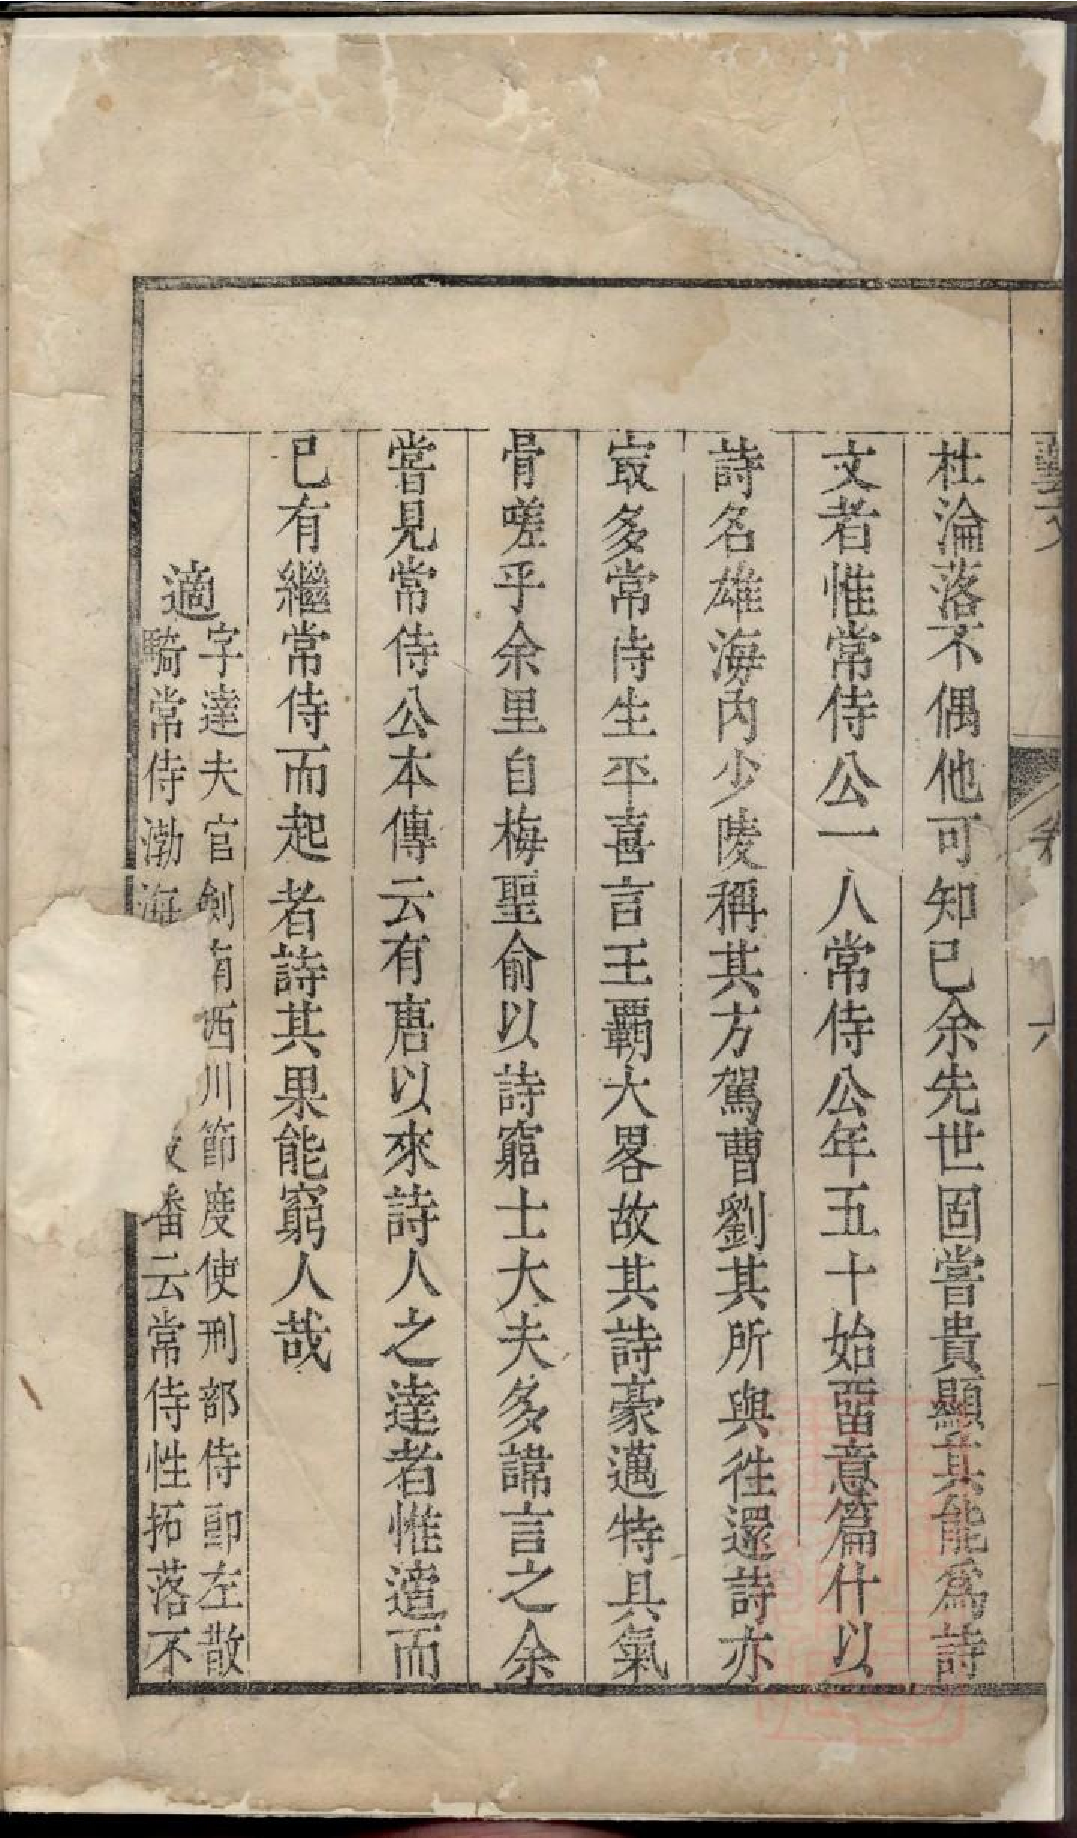 藝文
卷
六
杜淪落不偶他可知已余先世固嘗貴顯其能爲詩
文者惟常侍公一人常侍公年五十始畱意篇什以
詩名雄海內少陵稱其方駕曹劉其所與徃還詩亦
㝡多常侍生平喜言王覇大畧故其詩豪邁特具氣
骨嗟乎余里自梅聖俞以詩窮士大夫多諱言之余
嘗見常侍公本傳云有唐以來詩人之達者惟適而
已有繼常侍而起者詩其果能窮人哉
適
字達夫官劍南西川節度使刑部侍郎左散
騎常侍渤海
潘云常侍性拓落不